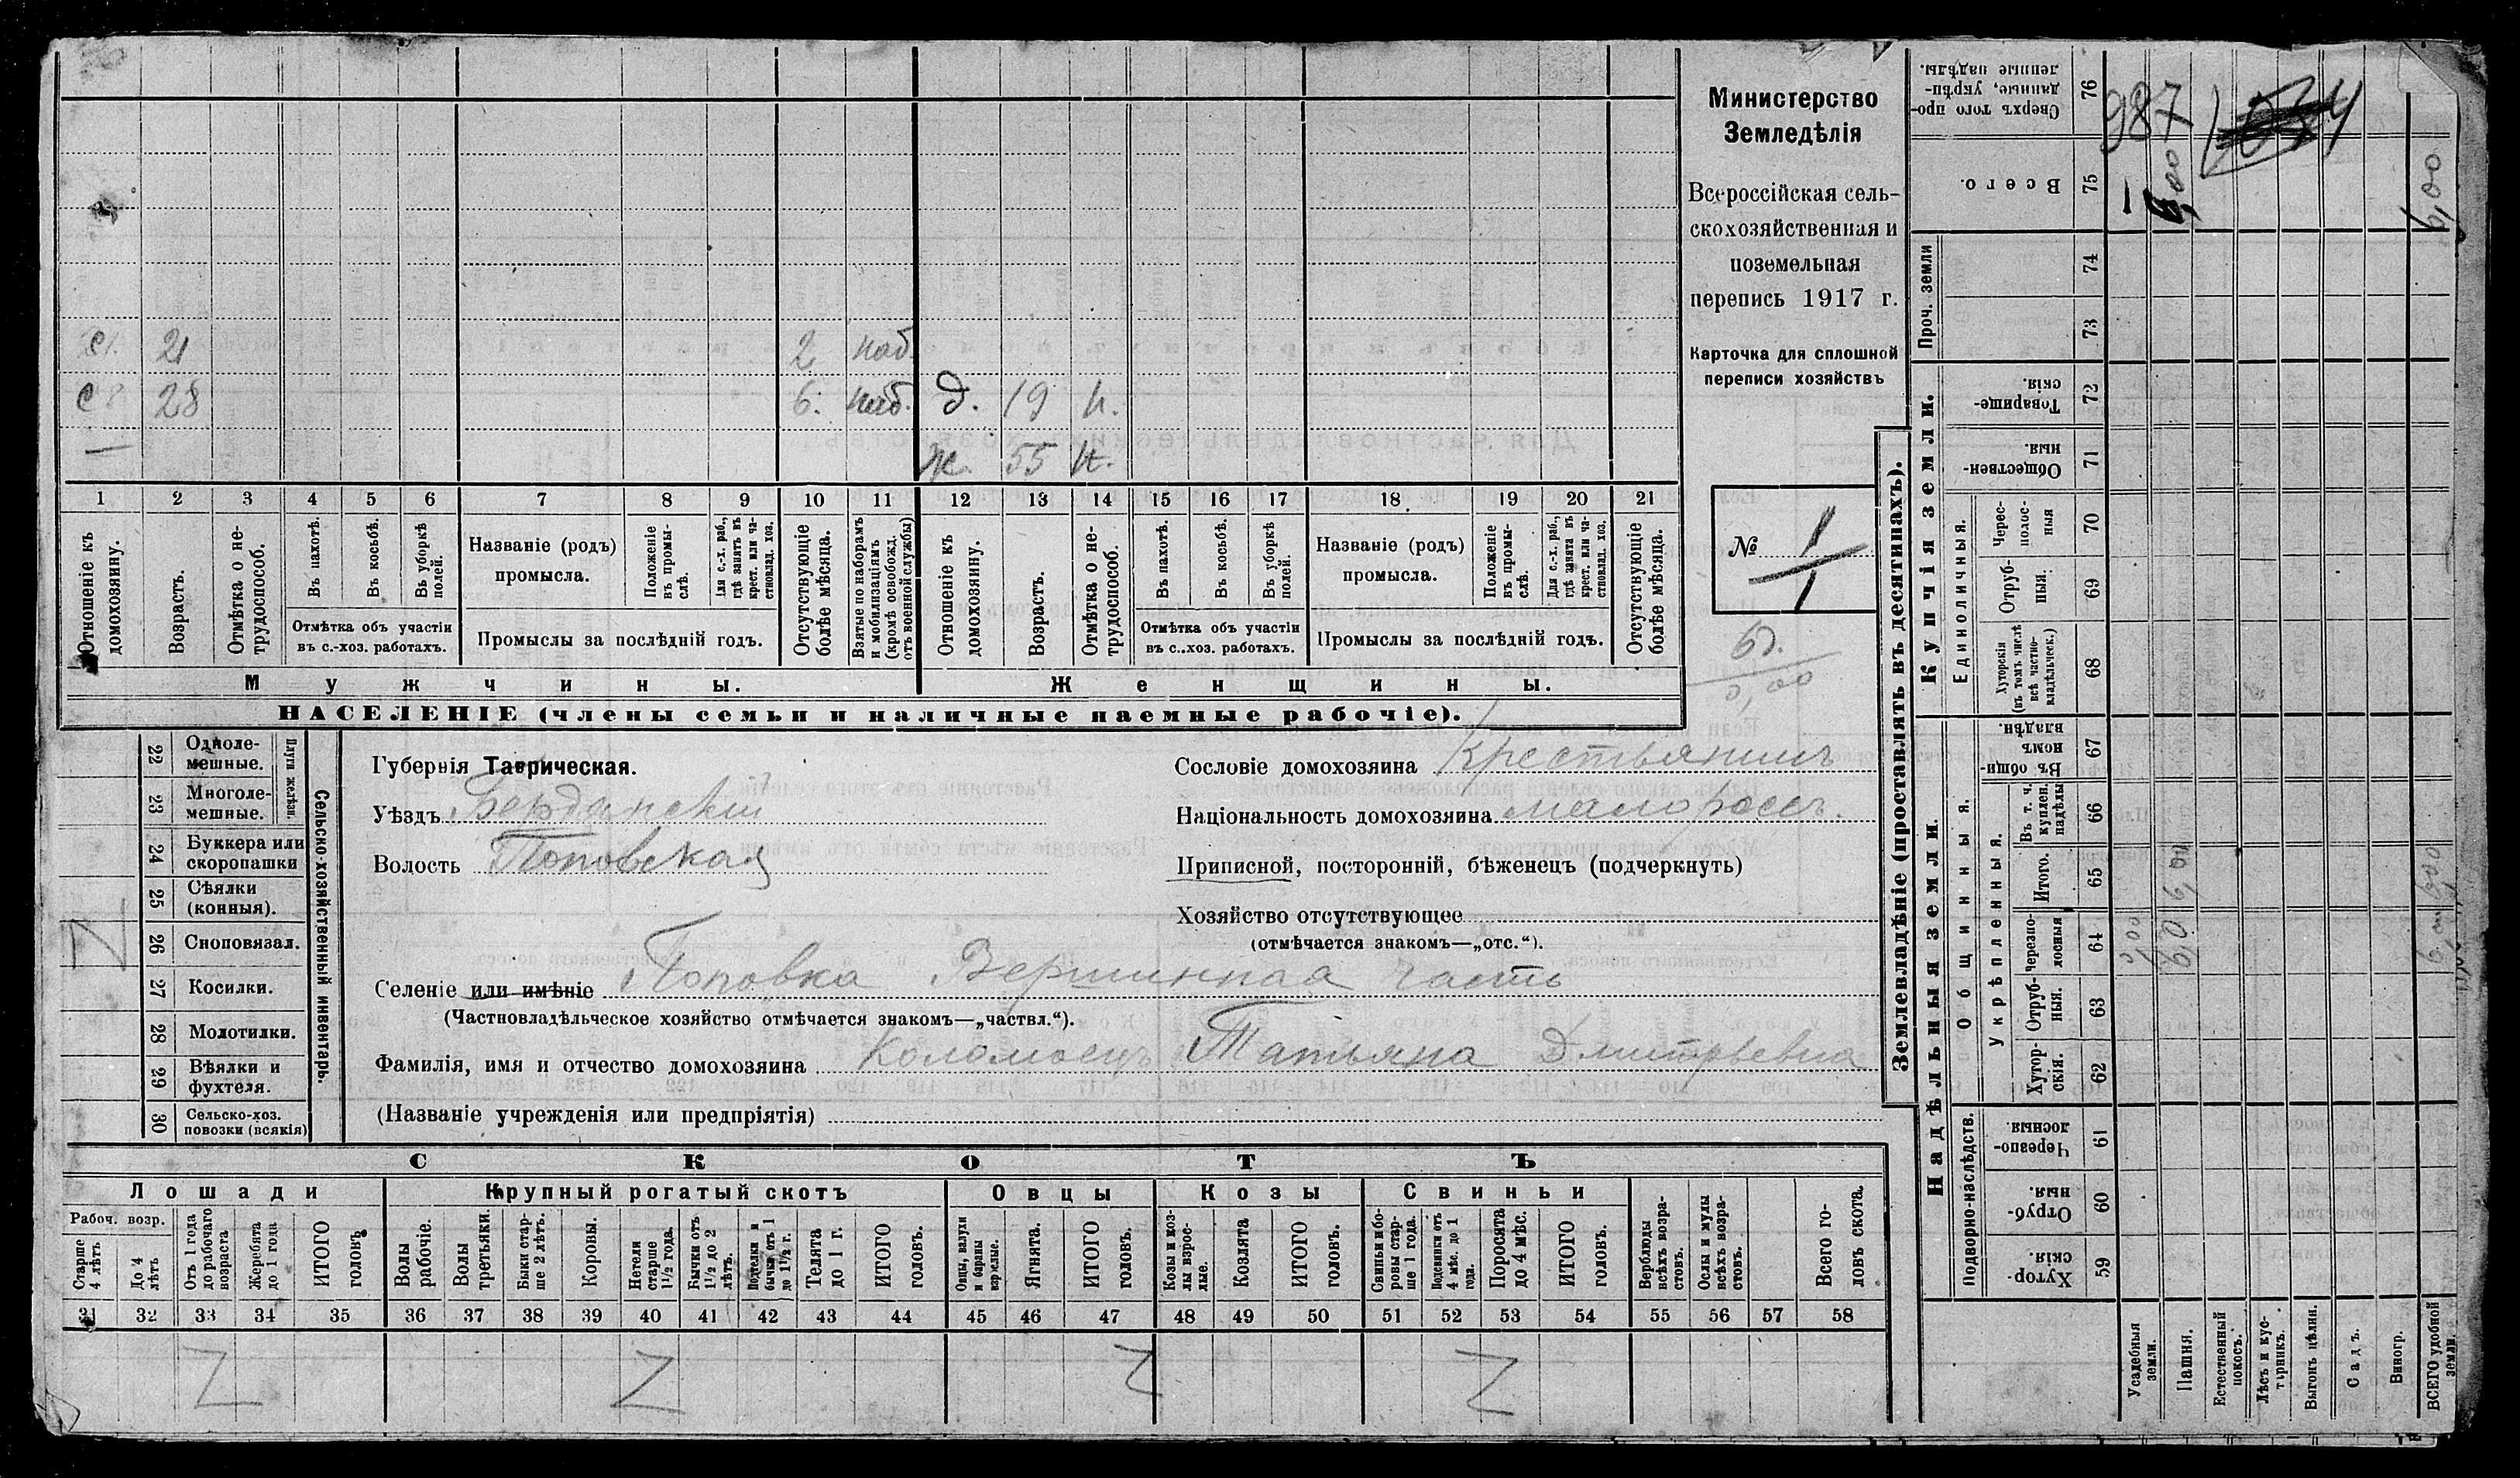 Министерство
Земледѣлія
Всероссійская сель-
скохозяйственная и
поземельная
перепись 1917 г.
Карточка для сплошной
переписи хозяйствъ
№ 1/1
с. 21 2 наб.
с 28 6. наб. д. 19 н.
— ж. 55 н.
1 2 3 4 5 6 7 8 9 10 11 12 13 14 15 16 17 18 19 20 21
Отношеніе къ домохозяину.
Возрастъ.
Отмѣтка о не-трудоспособ.
Въ пахотѣ.
Въ косьбѣ.
Въ уборкѣ полей.
Отмѣтка объ участіи
въ с.-хоз. работахъ.
Названіе (родъ)
промысла.
Положеніе въ промы-слѣ.
Для с.-х. раб., гдѣ занятъ въ крест. или ча-стновлад. хоз.
Промыслы за послѣдній годъ.
Отсутствующіе болѣе мѣсяца.
Взятые по наборамъ и мобилизаціямъ (кромѣ освобожд. отъ военной службы)
Отношеніе къ домохозяину.
Возрастъ.
Отмѣтка о не-трудоспособ.
Въ пахотѣ.
Въ косьбѣ.
Въ уборкѣ полей.
Отмѣтка объ участіи
въ с..хоз. работахъ.
Названіе (родъ)
промысла.
Положеніе въ промы-слѣ.
Для с.-х. раб., гдѣ занята въ крест. или ча-стновлад. хоз.
Промыслы за послѣдній годъ.
Отсутствующіе болѣе мѣсяца.
Мужчины. Женщины.
НАСЕЛЕНІЕ (члены семьи и наличные наемные рабочіе).
Сельско-хозяйственный инвентарь.
Плуги желѣзн.
22 Одноле-мешные.
23 Многоле-мешные.
24 Буккера или скоропашки
25 Сѣялки (конныя).
26 Сноповязал.
27 Косилки.
28 Молотилки.
29 Вѣялки и фухтеля.
30 Сельско-хоз. повозки (всякія)
Губернія Таврическая.
Уѣздъ Бердянскій
Волость Поповская
Сословіе домохозяина Крестьянинъ
Національность домохозяина малороссъ.
Приписной, посторонній, бѣженецъ (подчеркнуть)
Хозяйство отсутствующее
(отмѣчается знакомъ—„отс.“).
Селеніе или имѣніе Поповка Вершинная часть
(Частновладѣльческое хозяйство отмѣчается знакомъ—„частвл.“).
Фамилія, имя и отчество домохозяина Коломоецъ Татьяна Дмитрьевна
(Названіе учрежденія или предпріятія)
СКОТЪ
Лошади Крупный рогатый скотъ Овцы Козы Свиньи
Рабоч. возр.
Старше 4 лѣтъ
До 4 лѣтъ
Отъ 1 года до рабочаго возраста
Жеребята до 1 года
ИТОГО головъ
Волы рабочіе.
Волы третьяки.
Быки стар-ше 2 лѣтъ.
Коровы.
Нетели старше 1½ года.
Бычки отъ 1½ до 2 лѣтъ.
Подтелки и бычки отъ 1 до 1½ г.
Телята до 1 г.
ИТОГО головъ.
Овцы, валухи и бараны взрослые.
Ягнята.
ИТОГО головъ.
Козы и коз-лы взрос-лые.
Козлята
ИТОГО головъ.
Свиньи и бо-ровы стар-ше 1 года.
Подсвинки отъ 4 мѣс. до 1 года.
Поросята до 4 мѣс.
ИТОГО головъ.
Верблюды всѣхъ возра-стовъ.
Ослы и мулы всѣхъ возра-стовъ.
Всего го-ловъ скота.
31 32 33 34 35 36 37 38 39 40 41 42 43 44 45 46 47 48 49 50 51 52 53 54 55 56 57 58
Землевладѣніе (проставлять въ десятинахъ).
Надѣльныя земли.
Подворно-наслѣдств.
Хутор-скія. 59
Отруб-ныя. 60
Черезпо-лосныя. 61
Общинныя.
Укрѣпленныя.
Хутор-скія. 62
Отруб-ныя. 63
Черезпо-лосныя 64
Итого. 65
Въ т. ч. куплен. надѣлы 66
Въ общи-номъ владѣн. 67
Купчія земли.
Единоличныя.
Хуторскія (въ томъ числѣ всѣ частно-владѣльческ.) 68
Отруб-ныя. 69
Черес-полос-ныя 70
Обществен-ныя. 71
Товарище-скія. 72
Проч. земли
73
74
Всего. 75
Сверхъ того про-данные, укрѣп-ленные надѣлы. 76
987
Усадебныя земли.
Пашня.
Естественный покосъ.
Лѣсъ и кус-тарникъ.
Выгонъ цѣлин.
Садъ.
Виногр.
ВСЕГО удобной земли.